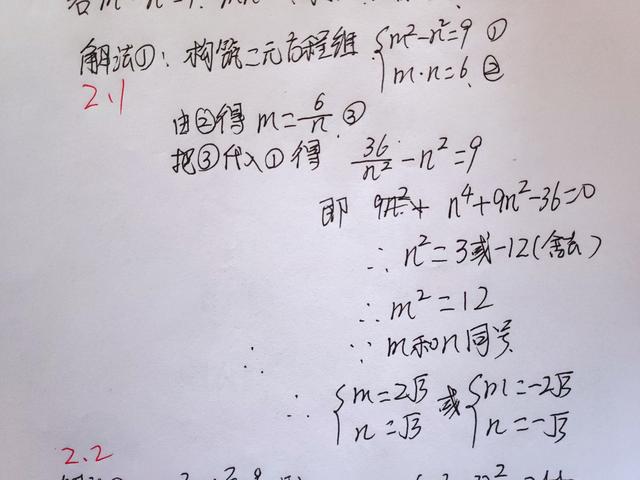 解法①：构筑二元方程组 {m²-n²=9 ①
m·n=6 ②
2.1
由②得 m=6/n ③
把③代入①得 36/n²-n²=9
即 n⁴+9n²-36=0
∴ n²=3或-12(舍去)
∴ m²=12
∵ m和n同号
∴ {m=2√3 或 {m=-2√3
n=√3 n=-√3
2.2